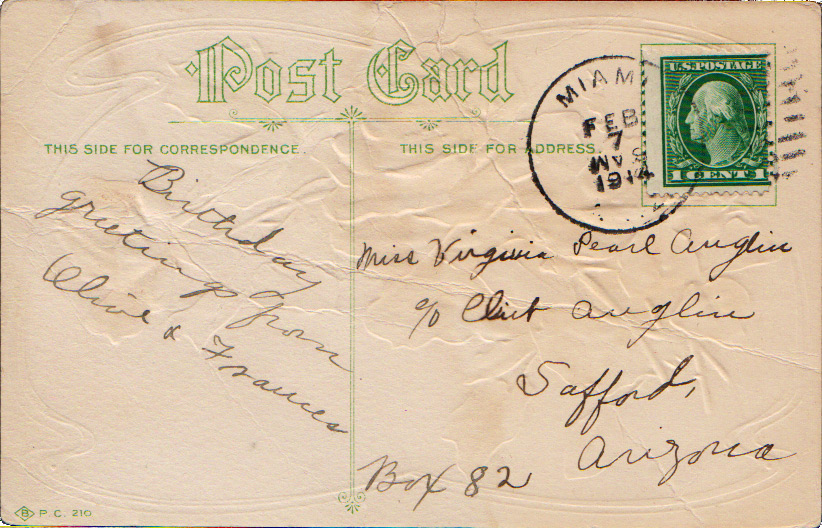 Post Card
THIS SIDE FOR CORRESPONDENCE.
THIS SIDE FOR ADDRESS.
MIAMI
FEB
7
1914
U.S. POSTAGE
1 CENT 1
Birthday
greetings from
Olive & Frances
Miss Virginia Pearl Anglin
c/o Clint Anglin
Safford,
Arizona
Box 82
B P.C. 210